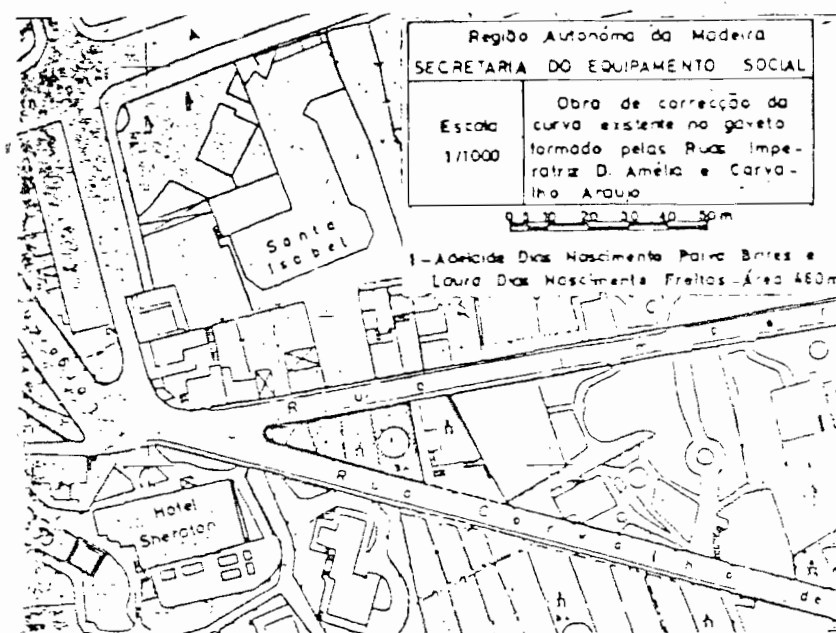 Região Autonóma da Madeira
SECRETARIA DO EQUIPAMENTO SOCIAL
Escala
1/1000
Obra de correcção da
curva existente no gaveto
formado pelas Ruas Impe-
ratriz D. Amélia e Carva-
lho Araujo
0 5 10 20 30 40 50 m
1-Adelaide Dias Nascimento Paiva Brites e
Laura Dias Nascimento Freitas-Área 460m
Santa
Isabel
Rua
Hotel
Sheraton
Rua Carvalho de